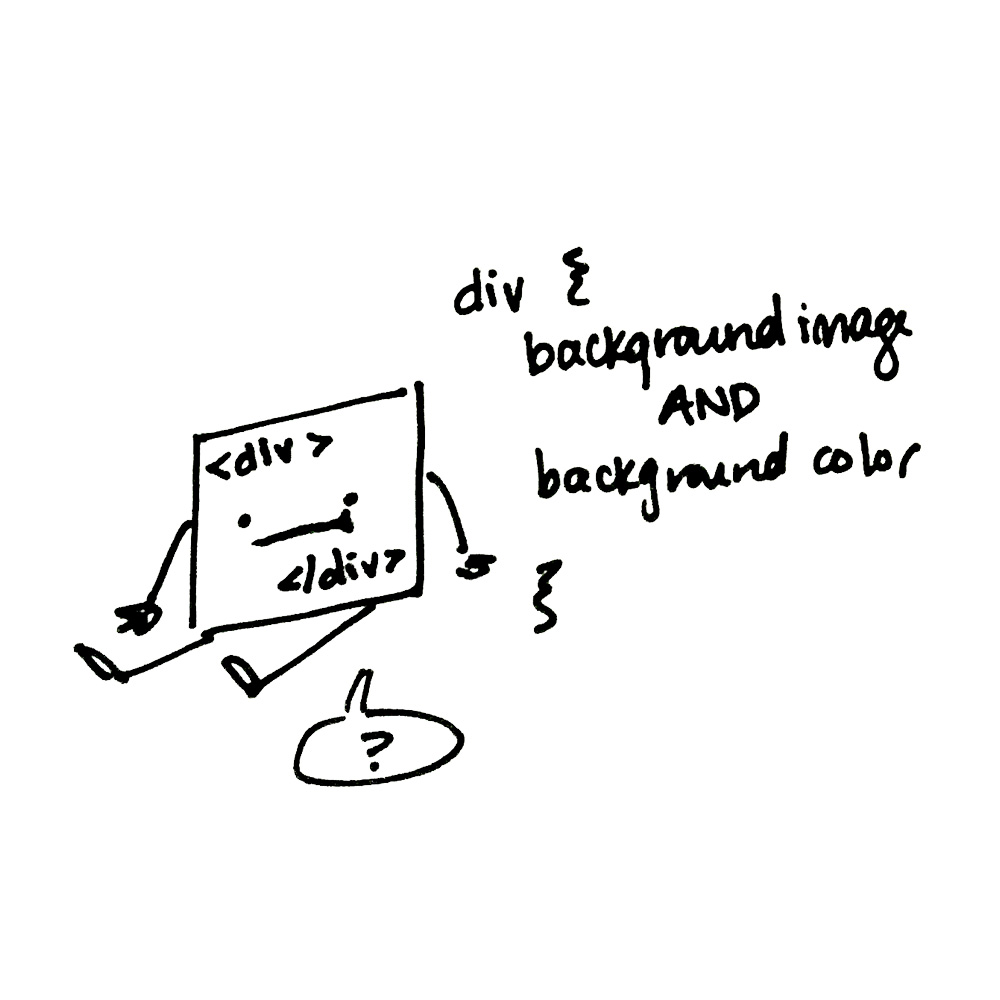 div {
background image
AND
background color
}
<div>
</div>
?